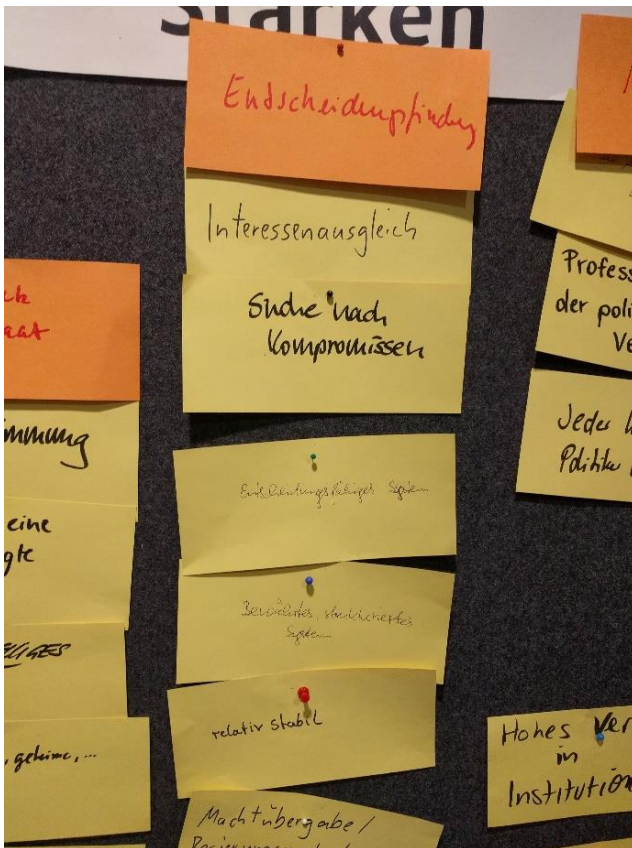 Stärken
Endscheidungsfindung
Interessenausgleich
Suche nach
Kompromissen
Entscheidungsfähiges System
Bewährtes, strukturiertes
System
relativ stabil
Machtübergabe /
mmung
eine
gte
geheime, ...
Profess
der poli
Ve
Jeder
Politike
Hohes Ver
in
Institution